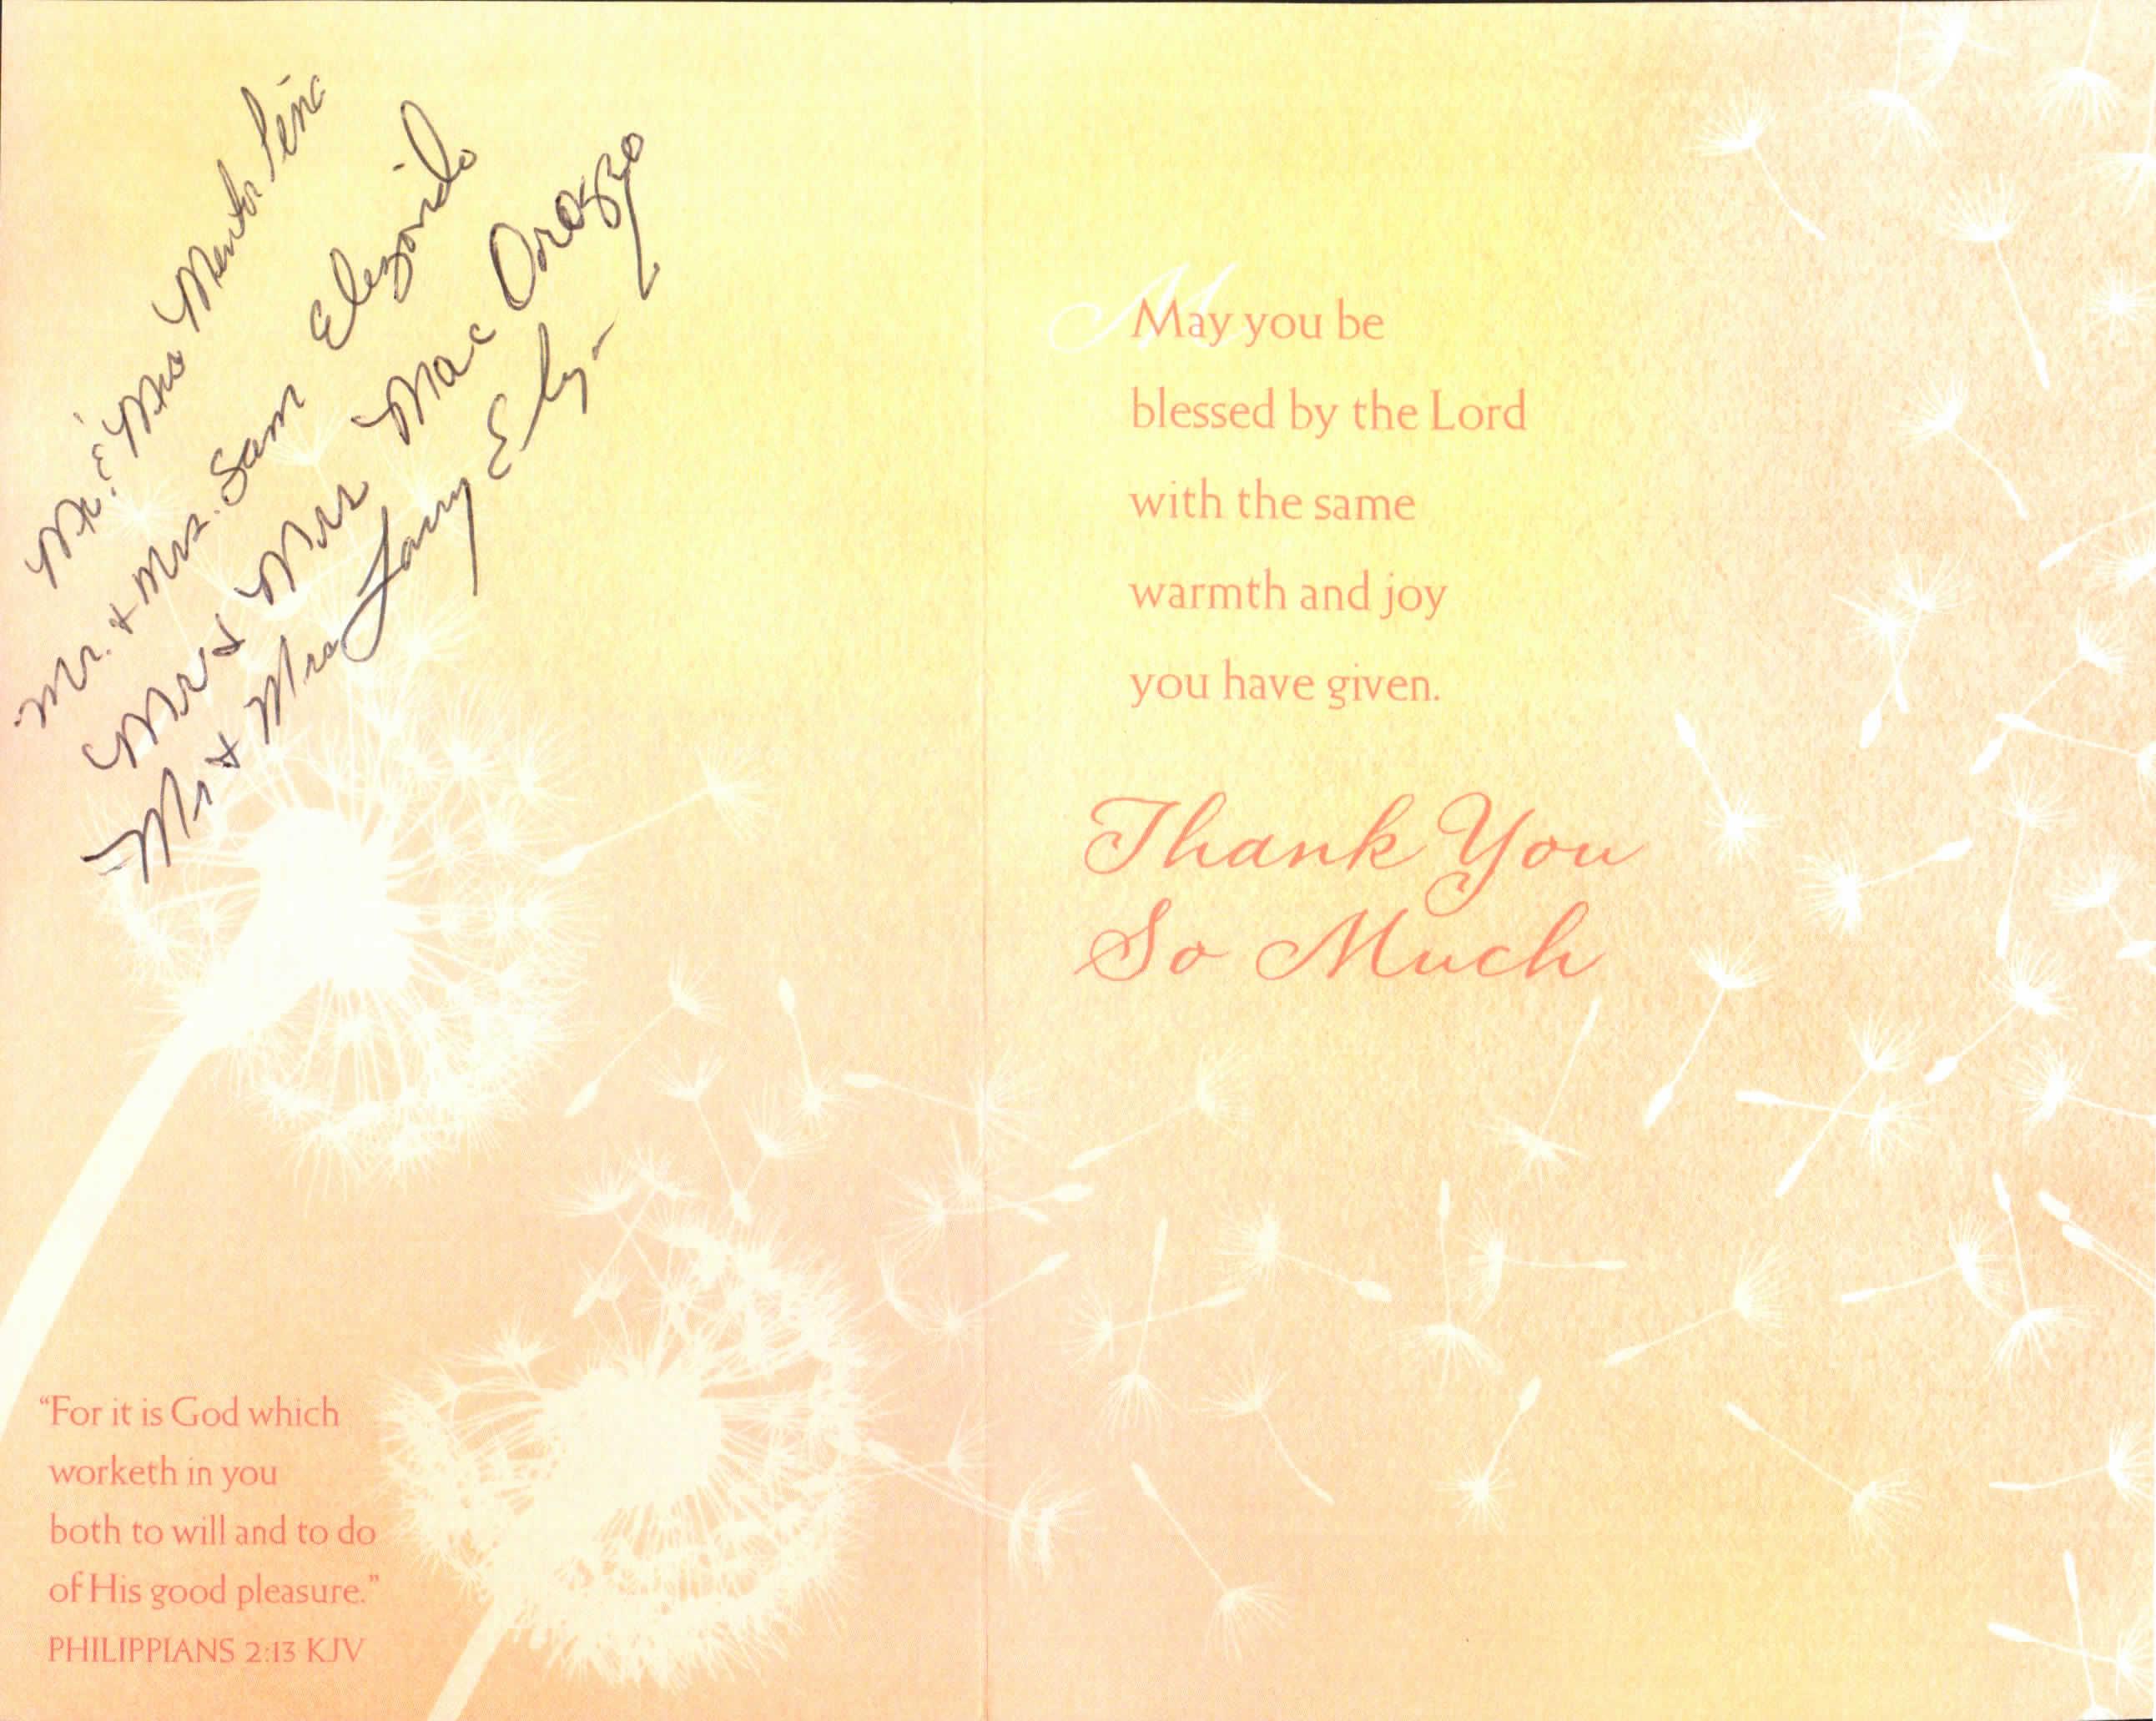 Mr. & Mrs Peña
Mr. & Mrs. Sam Elizondo
Mr & Mrs Mac Orozco
Mr & Mrs Larry
May you be
blessed by the Lord
with the same
warmth and joy
you have given.
Thank You
So Much
“For it is God which
worketh in you
both to will and to do
of His good pleasure.”
PHILIPPIANS 2:13 KJV